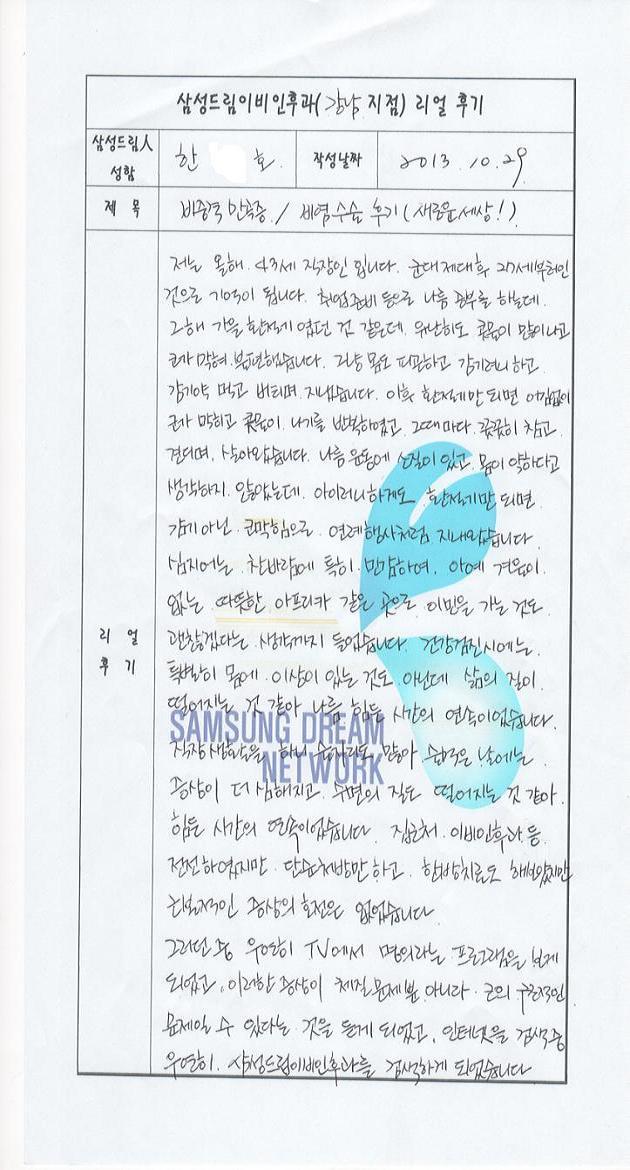 삼성드림이비인후과(강남 지점) 리얼 후기
삼성드림人 성함
한 호
작성날짜
2013. 10. 29
제 목
비중격 만곡증 / 비염수술 후기 (새로운세상!)
리 얼 후 기
저는 올해 43세 직장인 입니다. 군대제대후 27세부터인
것으로 기억이 됩니다. 취업준비 등으로 나름 공부를 하는데.
그해 가을 환절기 였던 것 같은데, 유난히도 콧물이 많이나고
코가 막혀 불편했습니다. 그냥 몸도 피곤하고 감기려니 하고.
감기약 먹고 버티며 지냈습니다. 이후 환절기만 되면 어김없이
코가 막히고 콧물이 나기를 반복하였고, 그때마다 꿋꿋히 참고
견디며, 살아왔습니다. 나름 운동에 소질이 있고, 몸이 약하다고
생각하지 않았는데. 아이러니하게도 환절기만 되면
감기아닌 코막힘으로 연례행사처럼 지내왔습니다
심지어는 찬바람에 특히 민감하여, 아예 겨울이
없는 따뜻한 아프리카 같은 곳으로 이민을 가는 것도
괜찮겠다는 생각까지 들었습니다. 건강검진시에는
특별히 몸에 이상이 있는 것도 아닌데 삶의 질이
떨어지는 것 같아 나름 힘든 시간의 연속이었습니다.
SAMSUNG DREAM
NETWORK
직장생활을 하니 술자리도 많아 술먹은 날에는
증상이 더 심해지고, 수면의 질도 떨어지는 것 같아.
힘든 시간의 연속이었습니다. 집근처 이비인후과 등
전전하였지만 단순처방만 하고, 한방치료도 해보았지만
근본적인 증상의 호전은 없었습니다
그러던 중 우연히 TV에서 명의라는 프로그램을 보게
되었고, 이러한 증상이 체질문제뿐 아니라 코의 구조적인
문제일 수 있다는 것을 듣게 되었고, 인터넷을 검색중
우연히, 삼성드림이비인후과를 검색하게 되었습니다